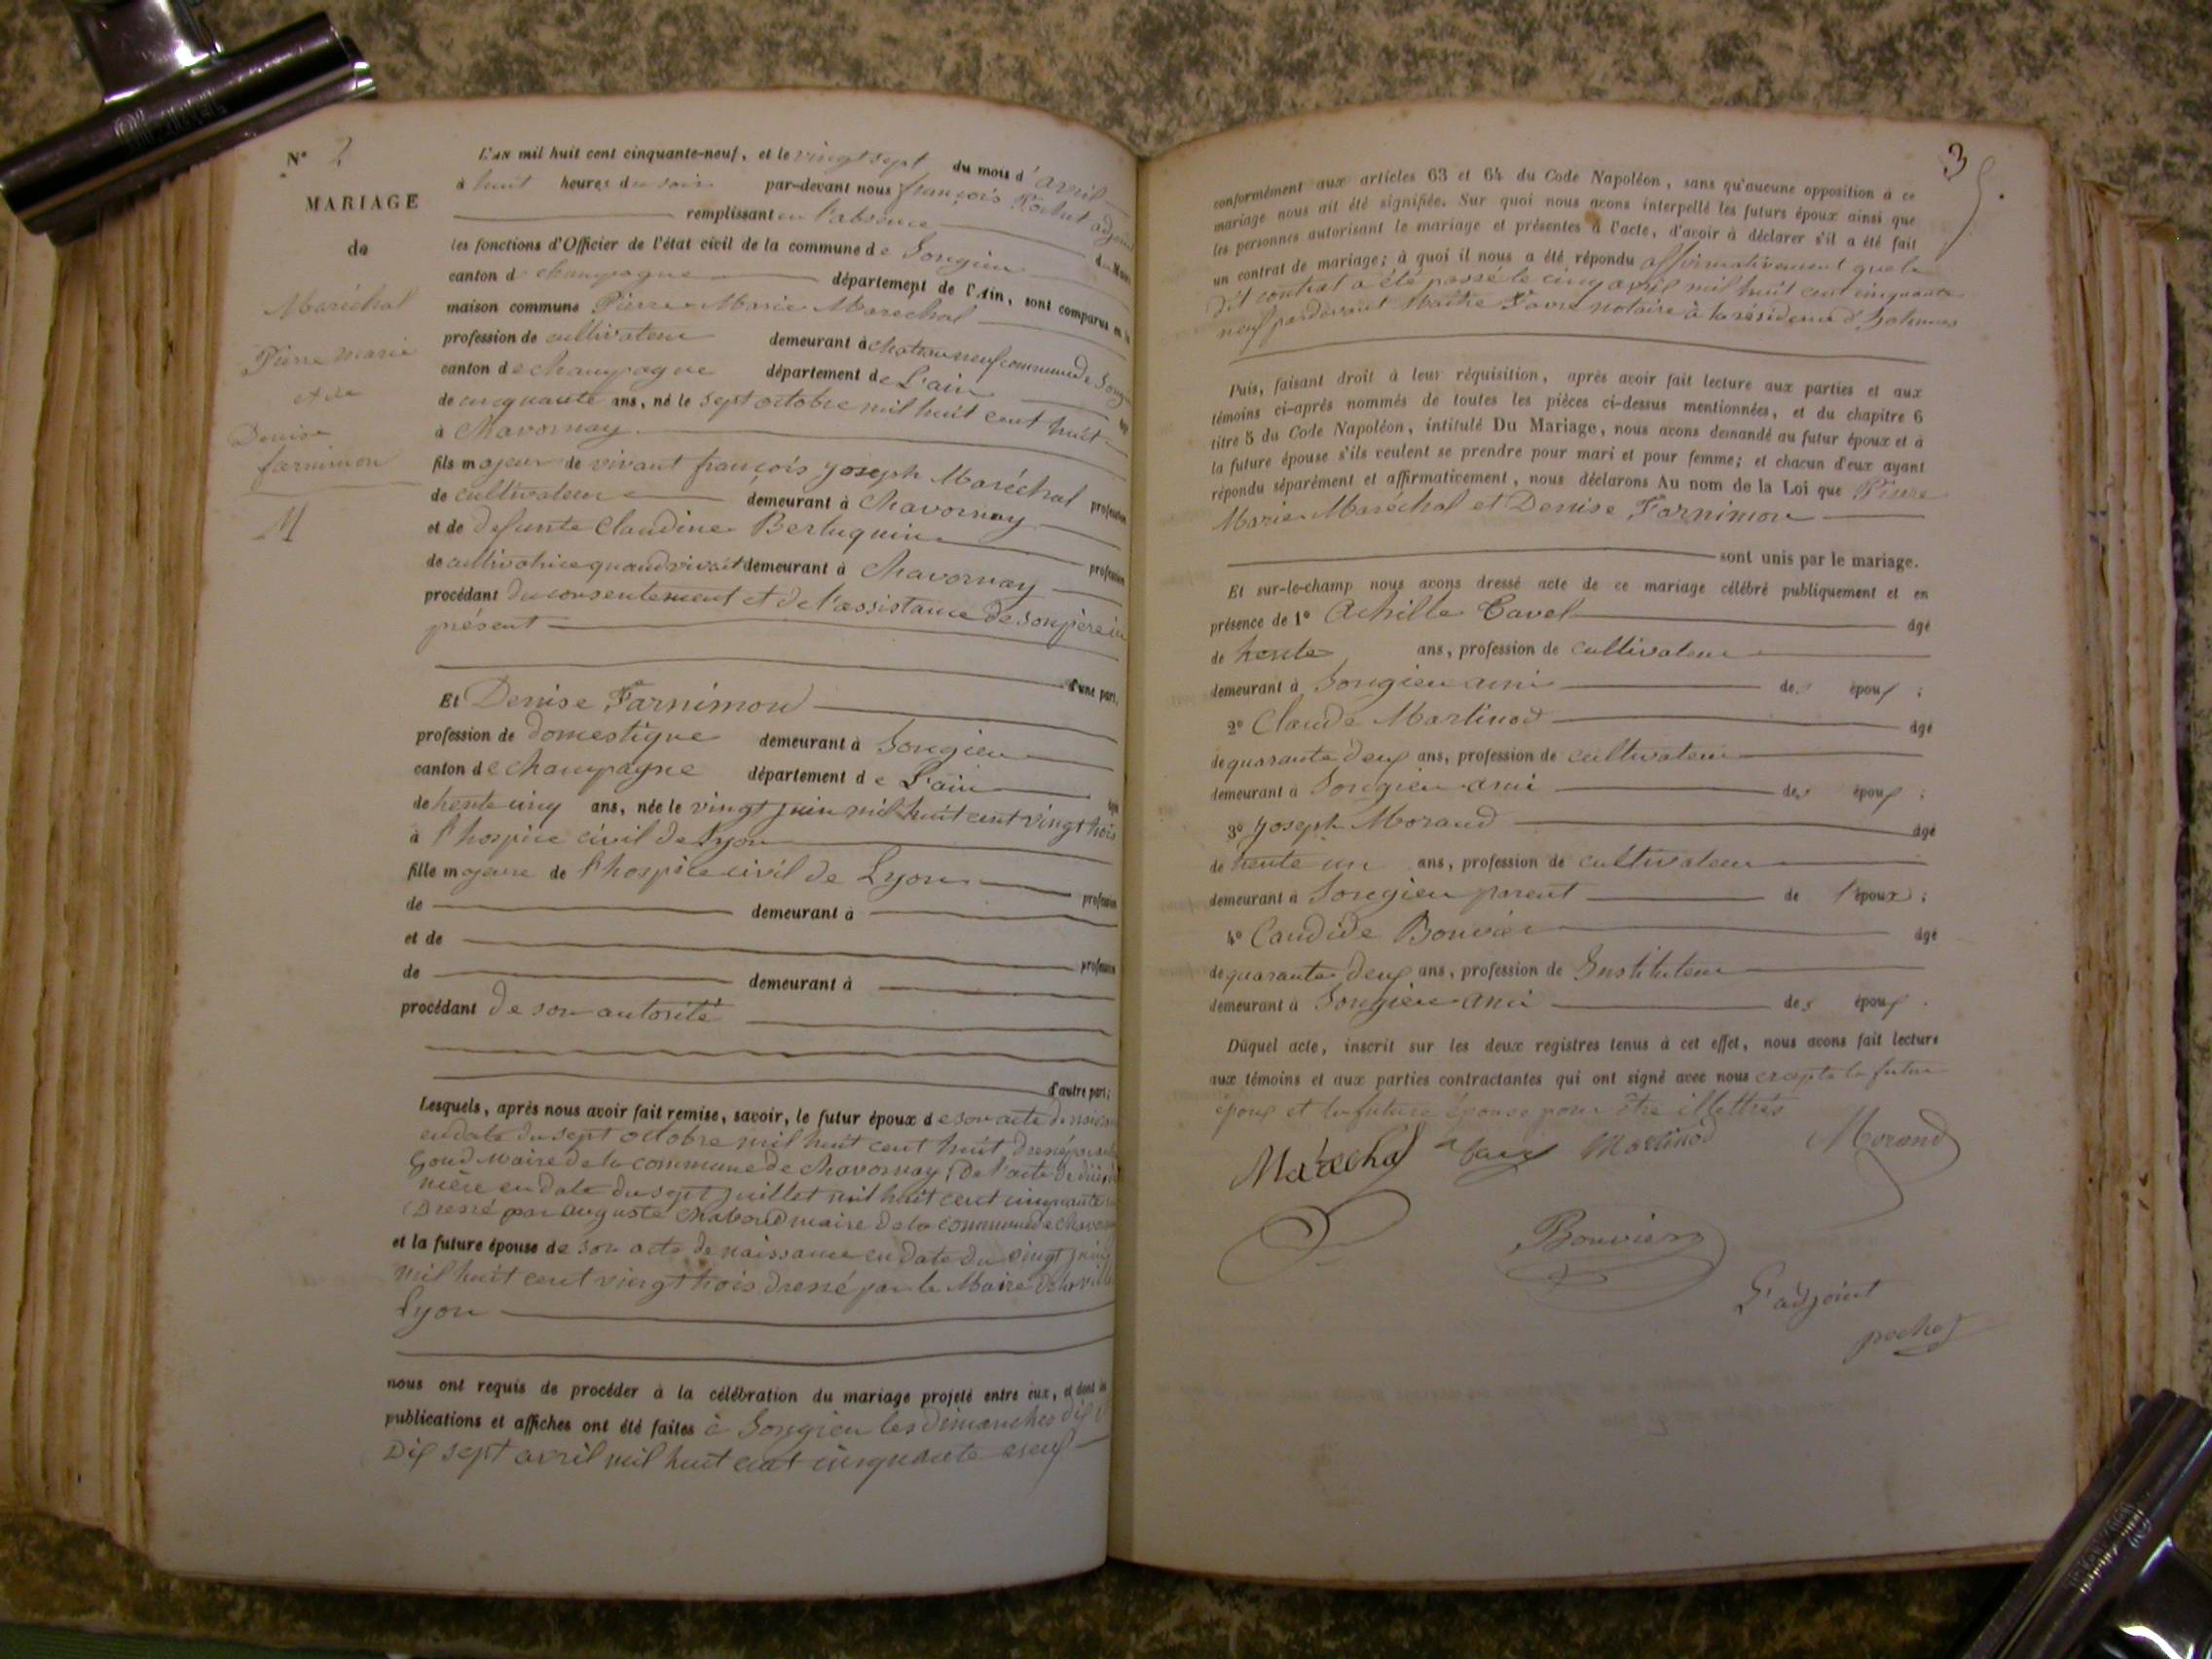 N° 2
MARIAGE
de
Maréchal
Pierre Marie
et de
Denise
farnimon
M
L'AN mil huit cent cinquante-neuf, et le vingt sept du mois d'avril
à huit heures du soir par-devant nous françois Rochet adjoint
remplissant en l'absence du Maire
les fonctions d'Officier de l'état civil de la commune de Songieu
canton de champagne département de l'Ain, sont comparus en la
maison commune Pierre Marie Marechal
profession de cultivateur demeurant à chateauneuf commune de Song
canton de champagne département de L'ain
de cinquante ans, né le sept octobre mil huit cent huit
à Chavornay
fils majeur de vivant françois joseph Maréchal profession
de cultivateur demeurant à Chavornay
et de defunte Claudine Berluquin profession
de cultivatrice quand vivait demeurant à Chavornay
procédant du consentement et de l'assistance de son père ici
présent
d'une part,
Et Denise Farnimon
profession de domestique demeurant à Songieu
canton de champagne département de L'ain
de trente cinq ans, née le vingt juin mil huit cent vingt trois
à l'hospice civil de Lyon
fille majeure de l'hospice civil de Lyon profession
de demeurant à
et de profession
de demeurant à
procédant de son autorité
d'autre part;
Lesquels, après nous avoir fait remise, savoir, le futur époux de son acte de
en date du sept octobre mil huit cent huit dressé
Goud Maire de la commune de Chavornay, De l'acte de
mère en date du sept juillet mil huit cent cinquante
Dressé par auguste Chaboud maire de la commune de
et la future épouse de son acte de naissance en date du vingt juin
mil huit cent vingt trois dressé par le Maire de la ville
Lyon
nous ont requis de procéder à la célébration du mariage projeté entre eux, et dont les
publications et affiches ont été faites à Songieu les dimanches dix
Dix sept avril mil huit cent cinquante neuf
3
conformément aux articles 63 et 64 du Code Napoléon, sans qu'aucune opposition à ce
mariage nous ait été signifiée. Sur quoi nous avons interpellé les futurs époux ainsi que
les personnes autorisant le mariage et présentes à l'acte, d'avoir à déclarer s'il a été fait
un contrat de mariage; à quoi il nous a été répondu affirmativement que le
dit contrat a été passé le cinq avril mil huit cent cinquante
neuf pardevant Maître Favre notaire à la résidence d'hotonnes
Puis, faisant droit à leur réquisition, après avoir fait lecture aux parties et aux
témoins ci-après nommés de toutes les pièces ci-dessus mentionnées, et du chapitre 6
titre 5 du Code Napoléon, intitulé Du Mariage, nous avons demandé au futur époux et à
la future épouse s'ils veulent se prendre pour mari et pour femme; et chacun d'eux ayant
répondu séparément et affirmativement, nous déclarons Au nom de la Loi que Pierre
Marie Maréchal et Denise Farnimon
sont unis par le mariage.
Et sur-le-champ nous avons dressé acte de ce mariage célébré publiquement et en
présence de 1° Achille Cavet âgé
de trente ans, profession de cultivateur
demeurant à Songieu ami des époux ;
2° Claude Martinod âgé
de quarante deux ans, profession de cultivateur
demeurant à Songieu ami des époux ;
3° Joseph Morand âgé
de trente un ans, profession de cultivateur
demeurant à Songieu parent de l'époux ;
4° Candide Bouvier âgé
de quarante deux ans, profession de Instituteur
demeurant à Songieu ami des époux .
Duquel acte, inscrit sur les deux registres tenus à cet effet, nous avons fait lecture
aux témoins et aux parties contractantes qui ont signé avec nous excepté le futur
époux et la future épouse pour être illettrés
Maréchal Martinod Morand
Bouvier
L'adjoint
Rochet